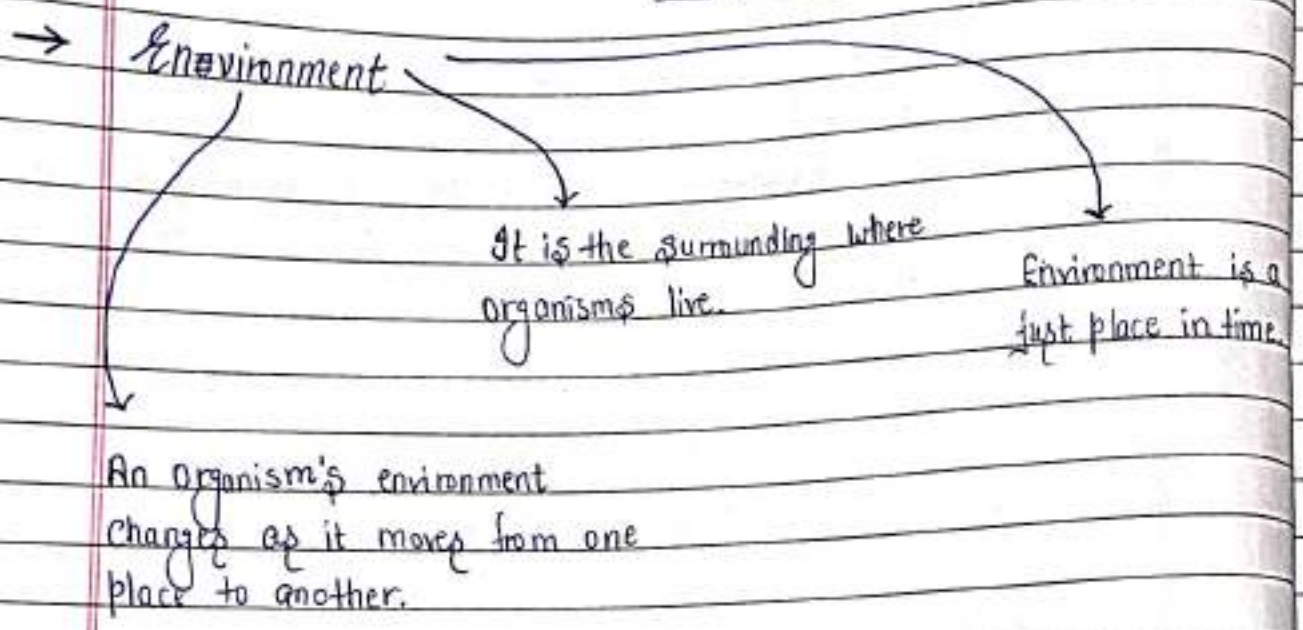 → Environment
It is the surrounding where
organisms live.
Environment is a
just place in time.
An organism's environment
changes as it moves from one
place to another.